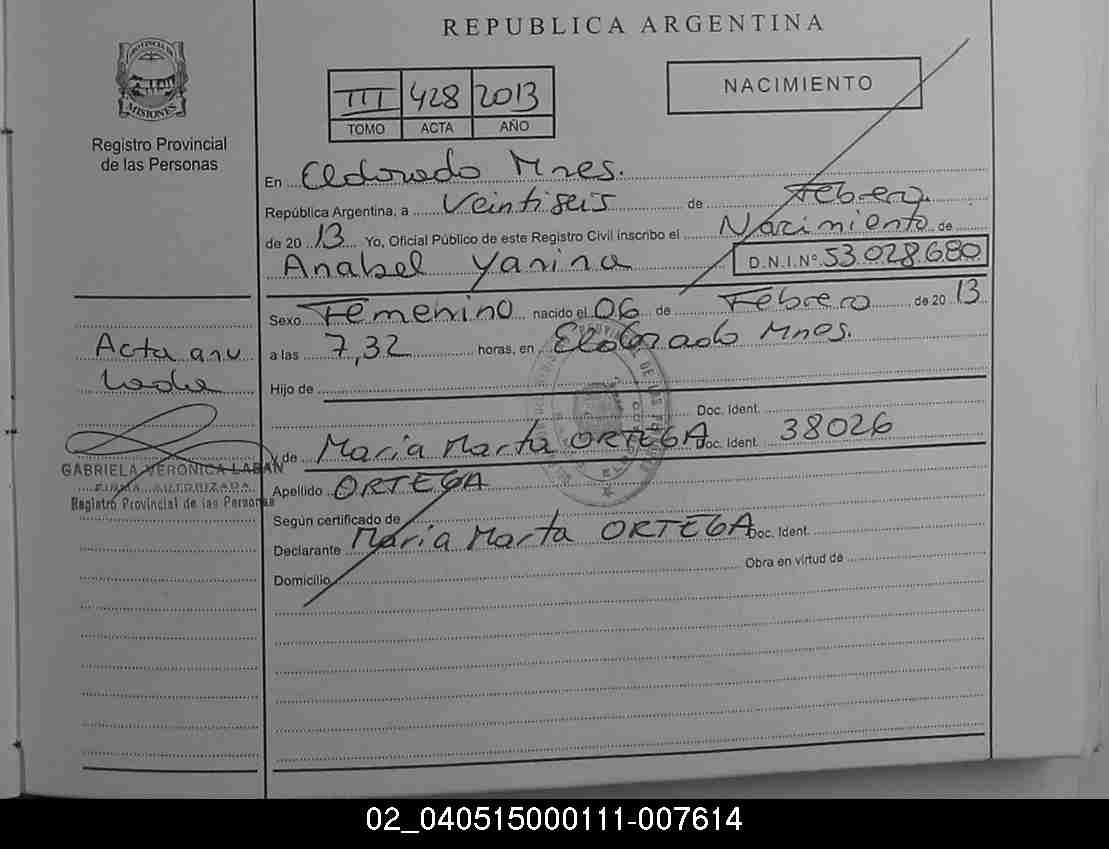 REPUBLICA ARGENTINA
PROVINCIA DE
MISIONES
Registro Provincial
de las Personas
III 428 2013
TOMO ACTA AÑO
NACIMIENTO
En Eldorado Mnes.
República Argentina, a Veintiseis de Febrero
de 2013 Yo, Oficial Público de este Registro Civil inscribo el Nacimiento de
Anabel Yanina D.N.I.Nº 53.028.680
Sexo Femenino nacido el 06 de Febrero de 2013
a las 7,32 horas, en Eldorado Mnes.
Hijo de
Doc. Ident.
y de Maria Marta ORTEGA Doc. Ident. 38026
Apellido ORTEGA
Según certificado de
Declarante Maria Marta ORTEGA Doc. Ident.
Domicilio Obra en virtud de
Acta anu
lada
GABRIELA VERONICA LABAN
FIRMA AUTORIZADA
Registro Provincial de las Personas
02_040515000111-007614